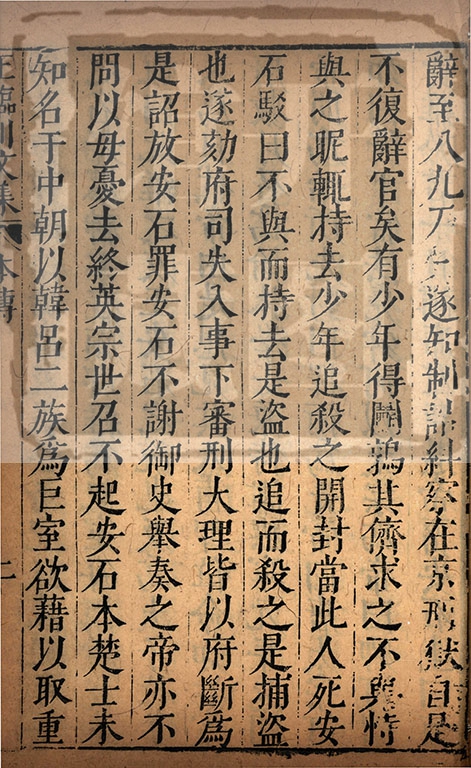 辭至八九乃受遂知制誥糾察在京刑獄自是
不復辭官矣有少年得鬭鶉其儕求之不與恃
與之昵輒持去少年追殺之開封當此人死安
石駁曰不與而持去是盜也追而殺之是捕盜
也遂劾府司失入事下審刑大理皆以府斷爲
是詔放安石罪安石不謝御史舉奏之帝亦不
問以母憂去終英宗世召不起安石本楚士未
知名于中朝以韓呂二族爲巨室欲藉以取重
王臨川文集 本傳 二